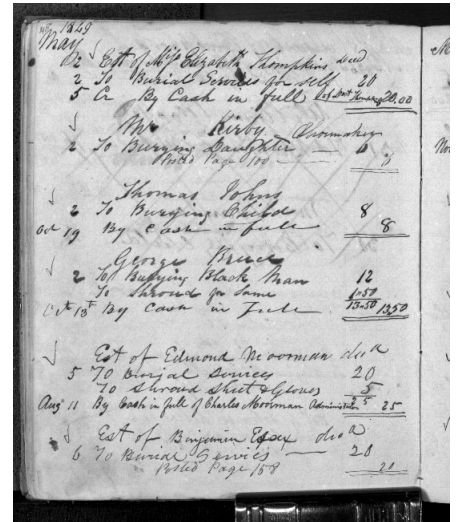 1849
May
02 Est of Mrs Elizabeth Thompkins decd
2 To Burial Services for self 20
5 Cr By Cash in full 20.00
Mr Kirby Shoemaker
2 To Burying Daughter — 6
Posted Page 100 — 6
Thomas Johns
2 To Burying Child 8
Oct 19 By Cash in full 8
George Bruce
2 To Burying Black Man 12
To Shroud for Same 1.50
Oct 13th By Cash in full 13.50 13.50
Est of Edmond Moorman decd
5 To Burial Services 20
To Shroud Sheet & Gloves 5
Aug 11 By Cash in full of Charles Moorman Administrator 25 25
Est of Binjamin Essex decd
6 To Burial Servics — 20
Posted Page 158